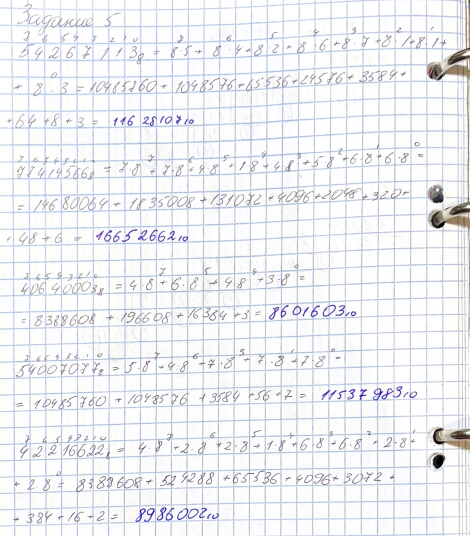 Задание 5
7 6 5 4 3 2 1 0
54267113₈ = 8⁷5 + 8⁶·4 + 8⁵·2 + 8⁴6 + 8³·7 + 8²·1 + 8¹·1 +
+ 8⁰·3 = 10485760 + 1048576 + 65536 + 24576 + 3584 +
+ 64 + 8 + 3 = 11628107₁₀
7 6 5 4 3 2 1 0
77414566₈ = 7·8⁷ + 7·8⁶ + 4·8⁵ + 1·8⁴ + 4·8³ + 5·8² + 6·8¹ + 6·8⁰ =
= 14680064 + 1835008 + 131072 + 4096 + 2048 + 320 +
+ 48 + 6 = 16652662₁₀
7 6 5 4 3 2 1 0
40640003₈ = 4·8⁷ + 6·8⁵ + 4·8⁴ + 3·8⁰ =
= 8388608 + 196608 + 16384 + 3 = 8601603₁₀
7 6 5 4 3 2 1 0
54007077₈ = 5·8⁷ + 4·8⁶ + 7·8³ + 7·8¹ + 7·8⁰ =
= 10485760 + 1048576 + 3584 + 56 + 7 = 11537983₁₀
7 6 5 4 3 2 1 0
42216622₈ = 4·8⁷ + 2·8⁶ + 2·8⁵ + 1·8⁴ + 6·8³ + 6·8² + 2·8¹ +
+ 2·8⁰ = 8388608 + 524288 + 65536 + 4096 + 3072 +
+ 384 + 16 + 2 = 8986002₁₀